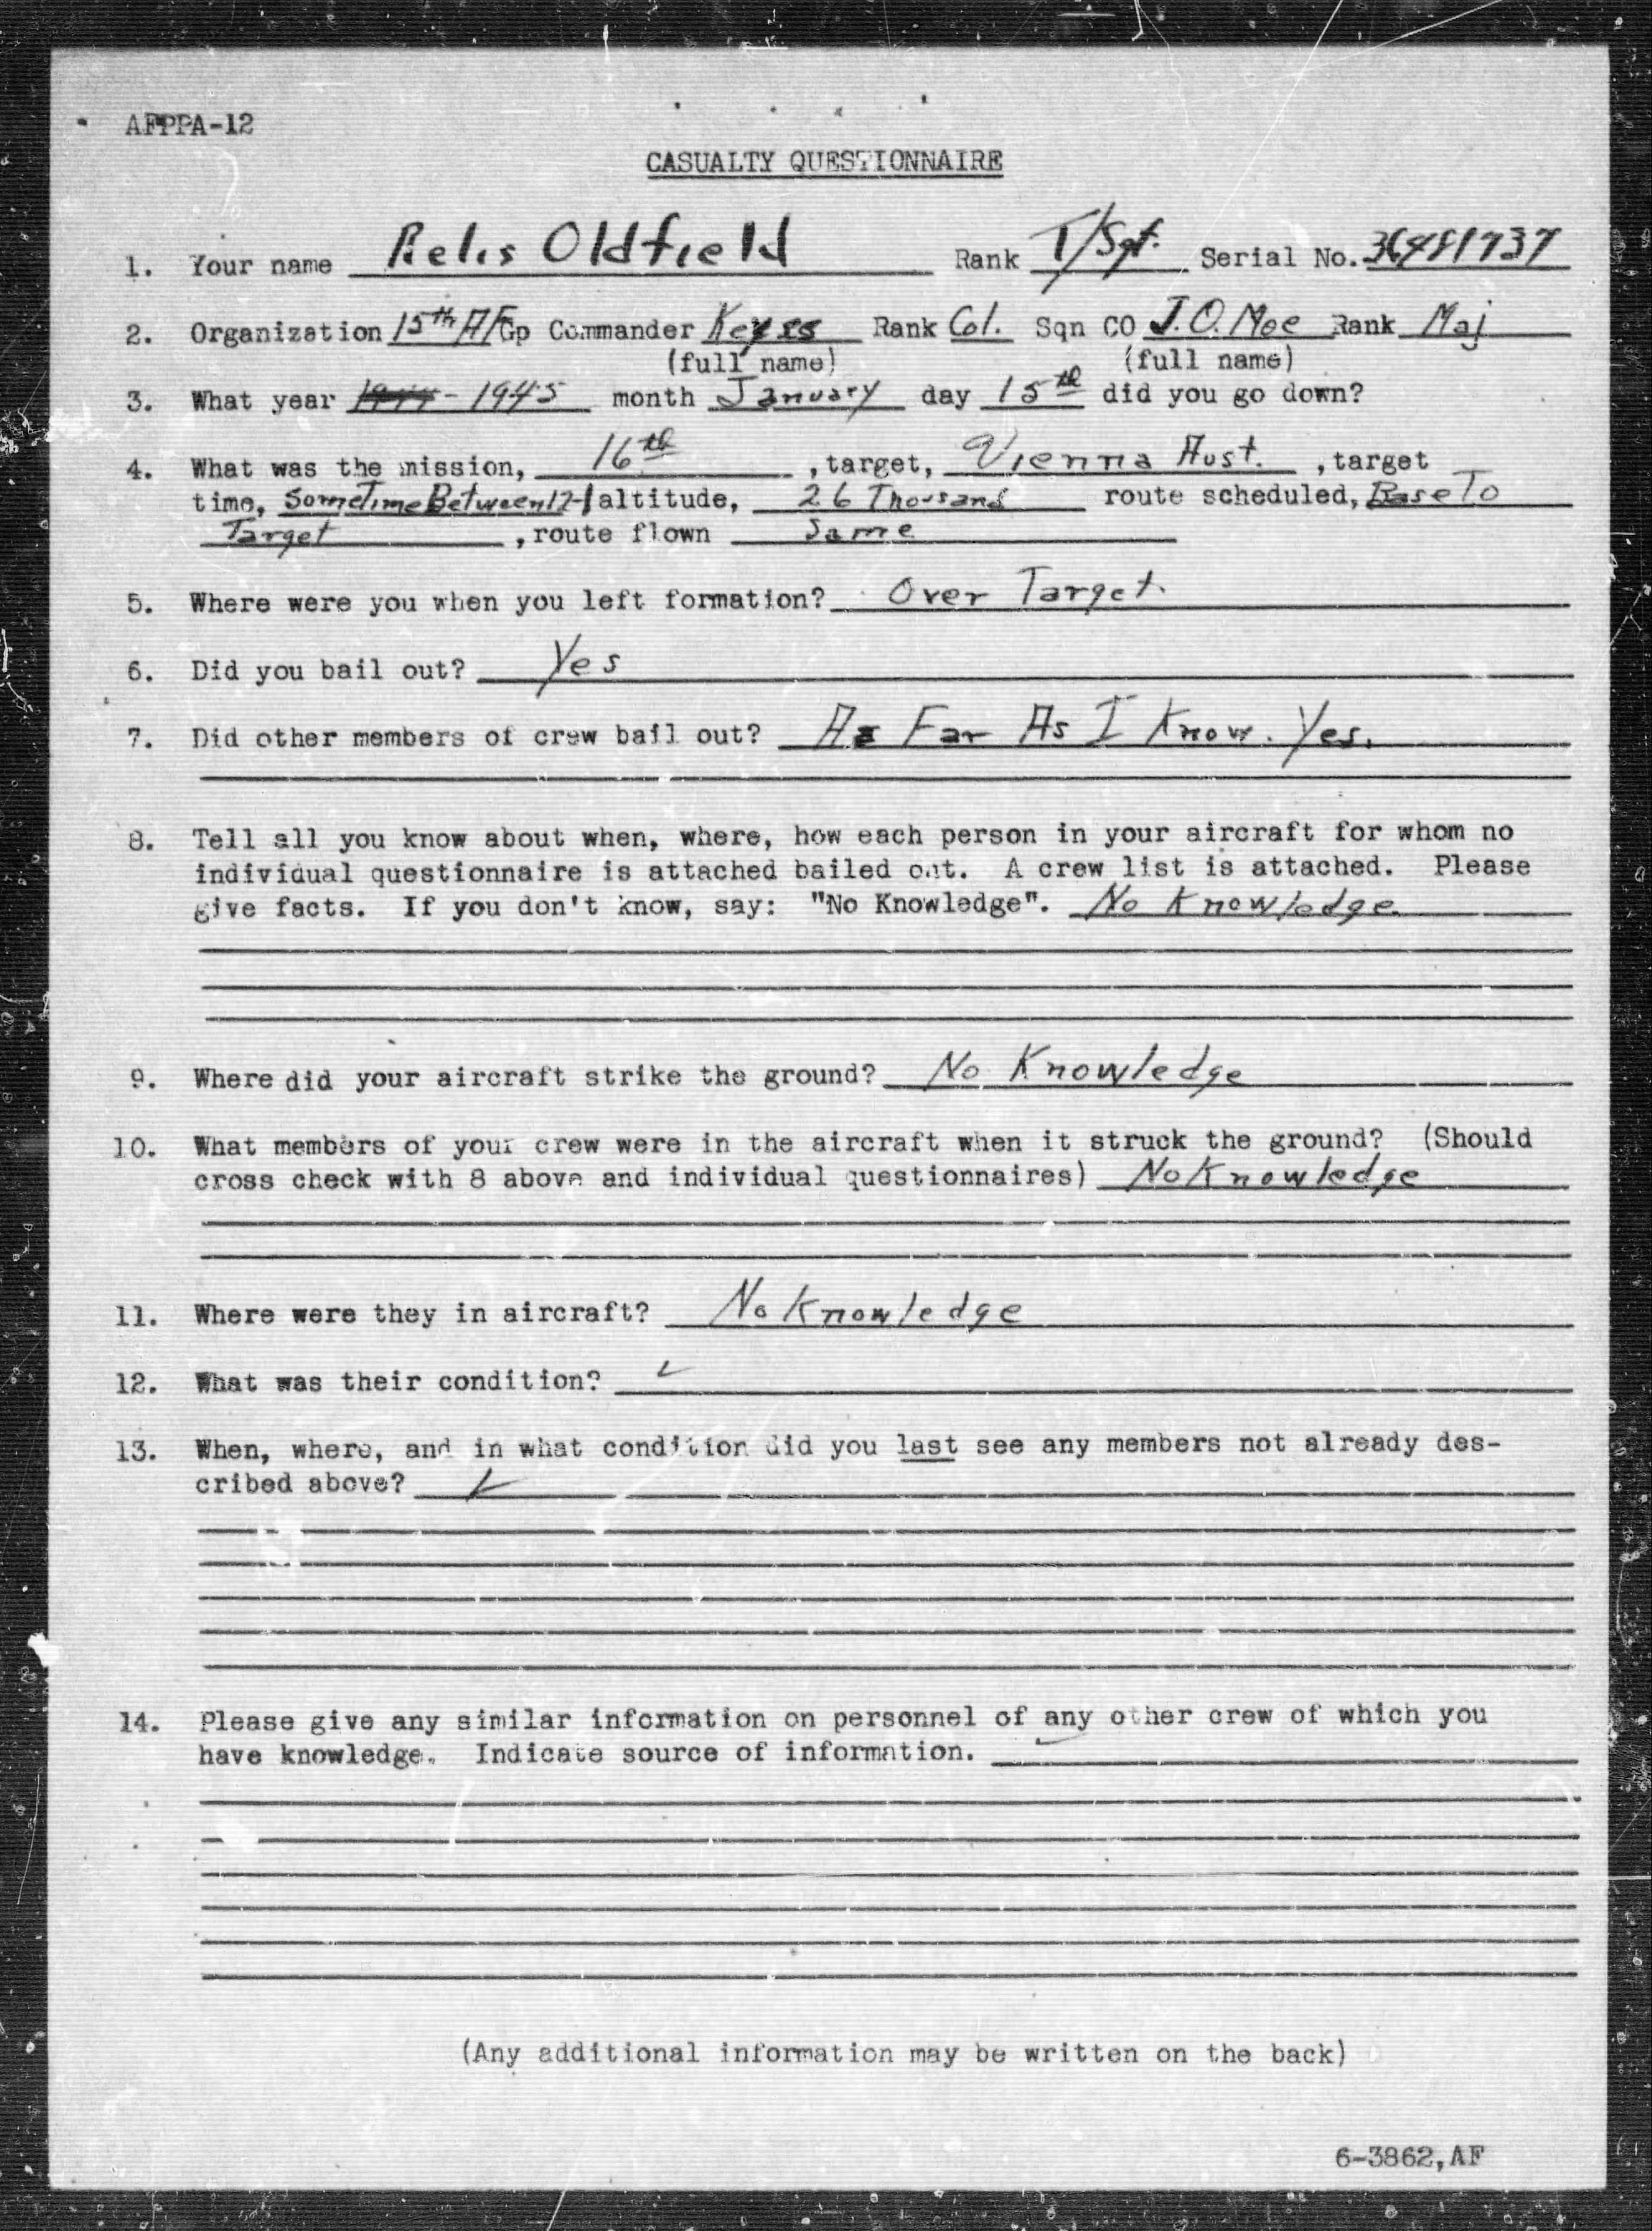 AFPPA-12
CASUALTY QUESTIONNAIRE
1. Your name Relis Oldfield Rank T/Sgt. Serial No.
2. Organization 15th A/F Gp Commander Rank Col. Sqn CO J.O. Moe Rank Maj
(full name) (full name)
3. What year 1944 - 1945 month January day 15th did you go down?
4. What was the mission, 16th , target, Vienna Aust. , target
time, SomeTime Between 12-1 altitude, 26 Thousand route scheduled, Base To
Target , route flown Same
5. Where were you when you left formation? Over Target.
6. Did you bail out? Yes
7. Did other members of crew bail out? As Far As I Know. Yes.
8. Tell all you know about when, where, how each person in your aircraft for whom no
individual questionnaire is attached bailed out. A crew list is attached. Please
give facts. If you don't know, say: "No Knowledge". No Knowledge.
9. Where did your aircraft strike the ground? No Knowledge
10. What members of your crew were in the aircraft when it struck the ground? (Should
cross check with 8 above and individual questionnaires) No Knowledge
11. Where were they in aircraft? No Knowledge
12. What was their condition?
13. When, where, and in what condition did you last see any members not already des-
cribed above?
14. Please give any similar information on personnel of any other crew of which you
have knowledge. Indicate source of information.
(Any additional information may be written on the back)
6-3862,AF